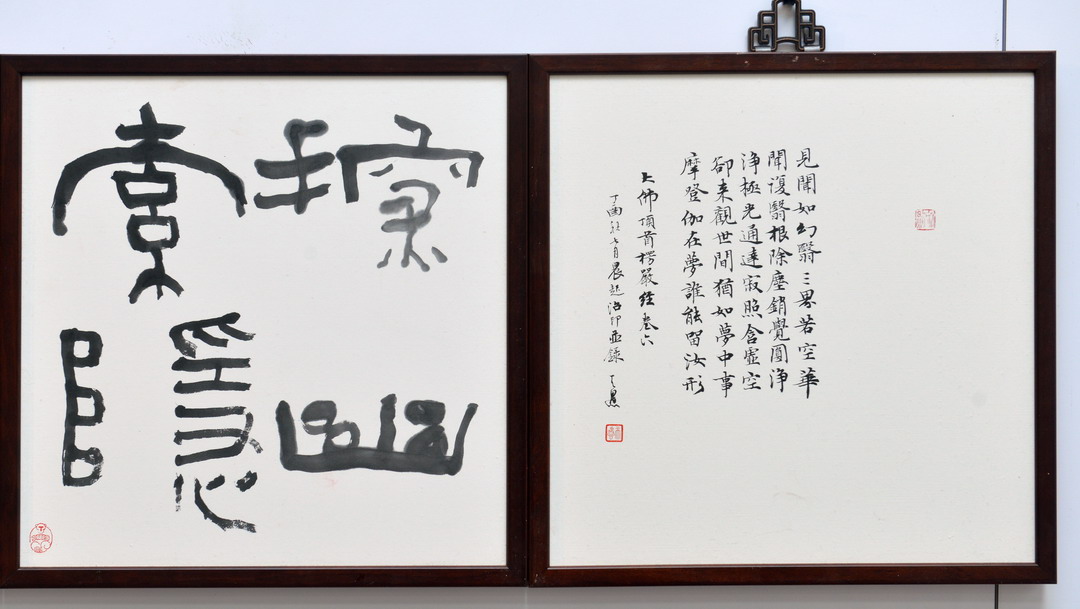 探幽
索隱
見聞如幻翳三界若空華
聞復翳根除塵銷覺圓淨
淨極光通達寂照含虛空
卻来觀世間猶如夢中事
摩登伽在夢誰能留汝形
大佛頂首楞嚴經卷六
丁酉秋七月晨起治印並錄